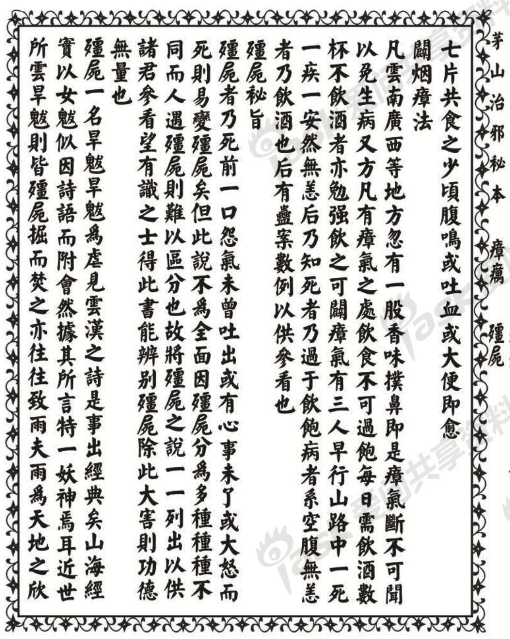 茅山治邪秘本 瘴癘 殭屍
七片共食之少頃腹鳴或吐血或大便即愈
闢烟瘴法
凡雲南廣西等地方忽有一股香味撲鼻即是瘴氣斷不可聞
以免生病又方凡有瘴氣之處飲食不可過飽每日需飲酒數
杯不飲酒者亦勉强飲之可闢瘴氣有三人早行山路中一死
一疾一安然無恙后乃知死者乃過于飲飽病者系空腹無恙
者乃飲酒也后有蠱案數例以供參看也
殭屍秘旨
殭屍者乃死前一口怨氣未曾吐出或有心事未了或大怒而
死則易變殭屍矣但此說不爲全面因殭屍分爲多種種種不
同而人遇殭屍則難以區分也故將殭屍之說一一列出以供
諸君參看望有識之士得此書能辨别殭屍除此大害則功德
無量也
殭屍一名旱魃旱魃爲虐見雲漢之詩是事出經典矣山海經
實以女魃似因詩語而附會然據其所言特一妖神焉耳近世
所雲旱魃則皆殭屍掘而焚之亦往往致雨夫雨爲天地之欣